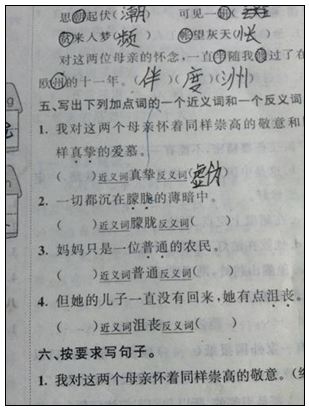 思潮起伏(潮) 可见一斑
频来入梦(频) 怅望灰天(怅)
对这两位母亲的怀念,一直伴随我度过了在
欧洲的十一年。(伴)(度)(洲)
五、写出下列加点词的一个近义词和一个反义词
1. 我对这两个母亲怀着同样崇高的敬意和
样真挚的爱慕。
( )近义词真挚反义词(虚伪
2. 一切都沉在朦胧的薄暗中。
( )近义词朦胧反义词( )
3. 妈妈只是一位普通的农民。
( )近义词普通反义词( )
4. 但她的儿子一直没有回来,她有点沮丧。
( )近义词沮丧反义词( )
六、按要求写句子。
1. 我对这两个母亲怀着同样崇高的敬意。(